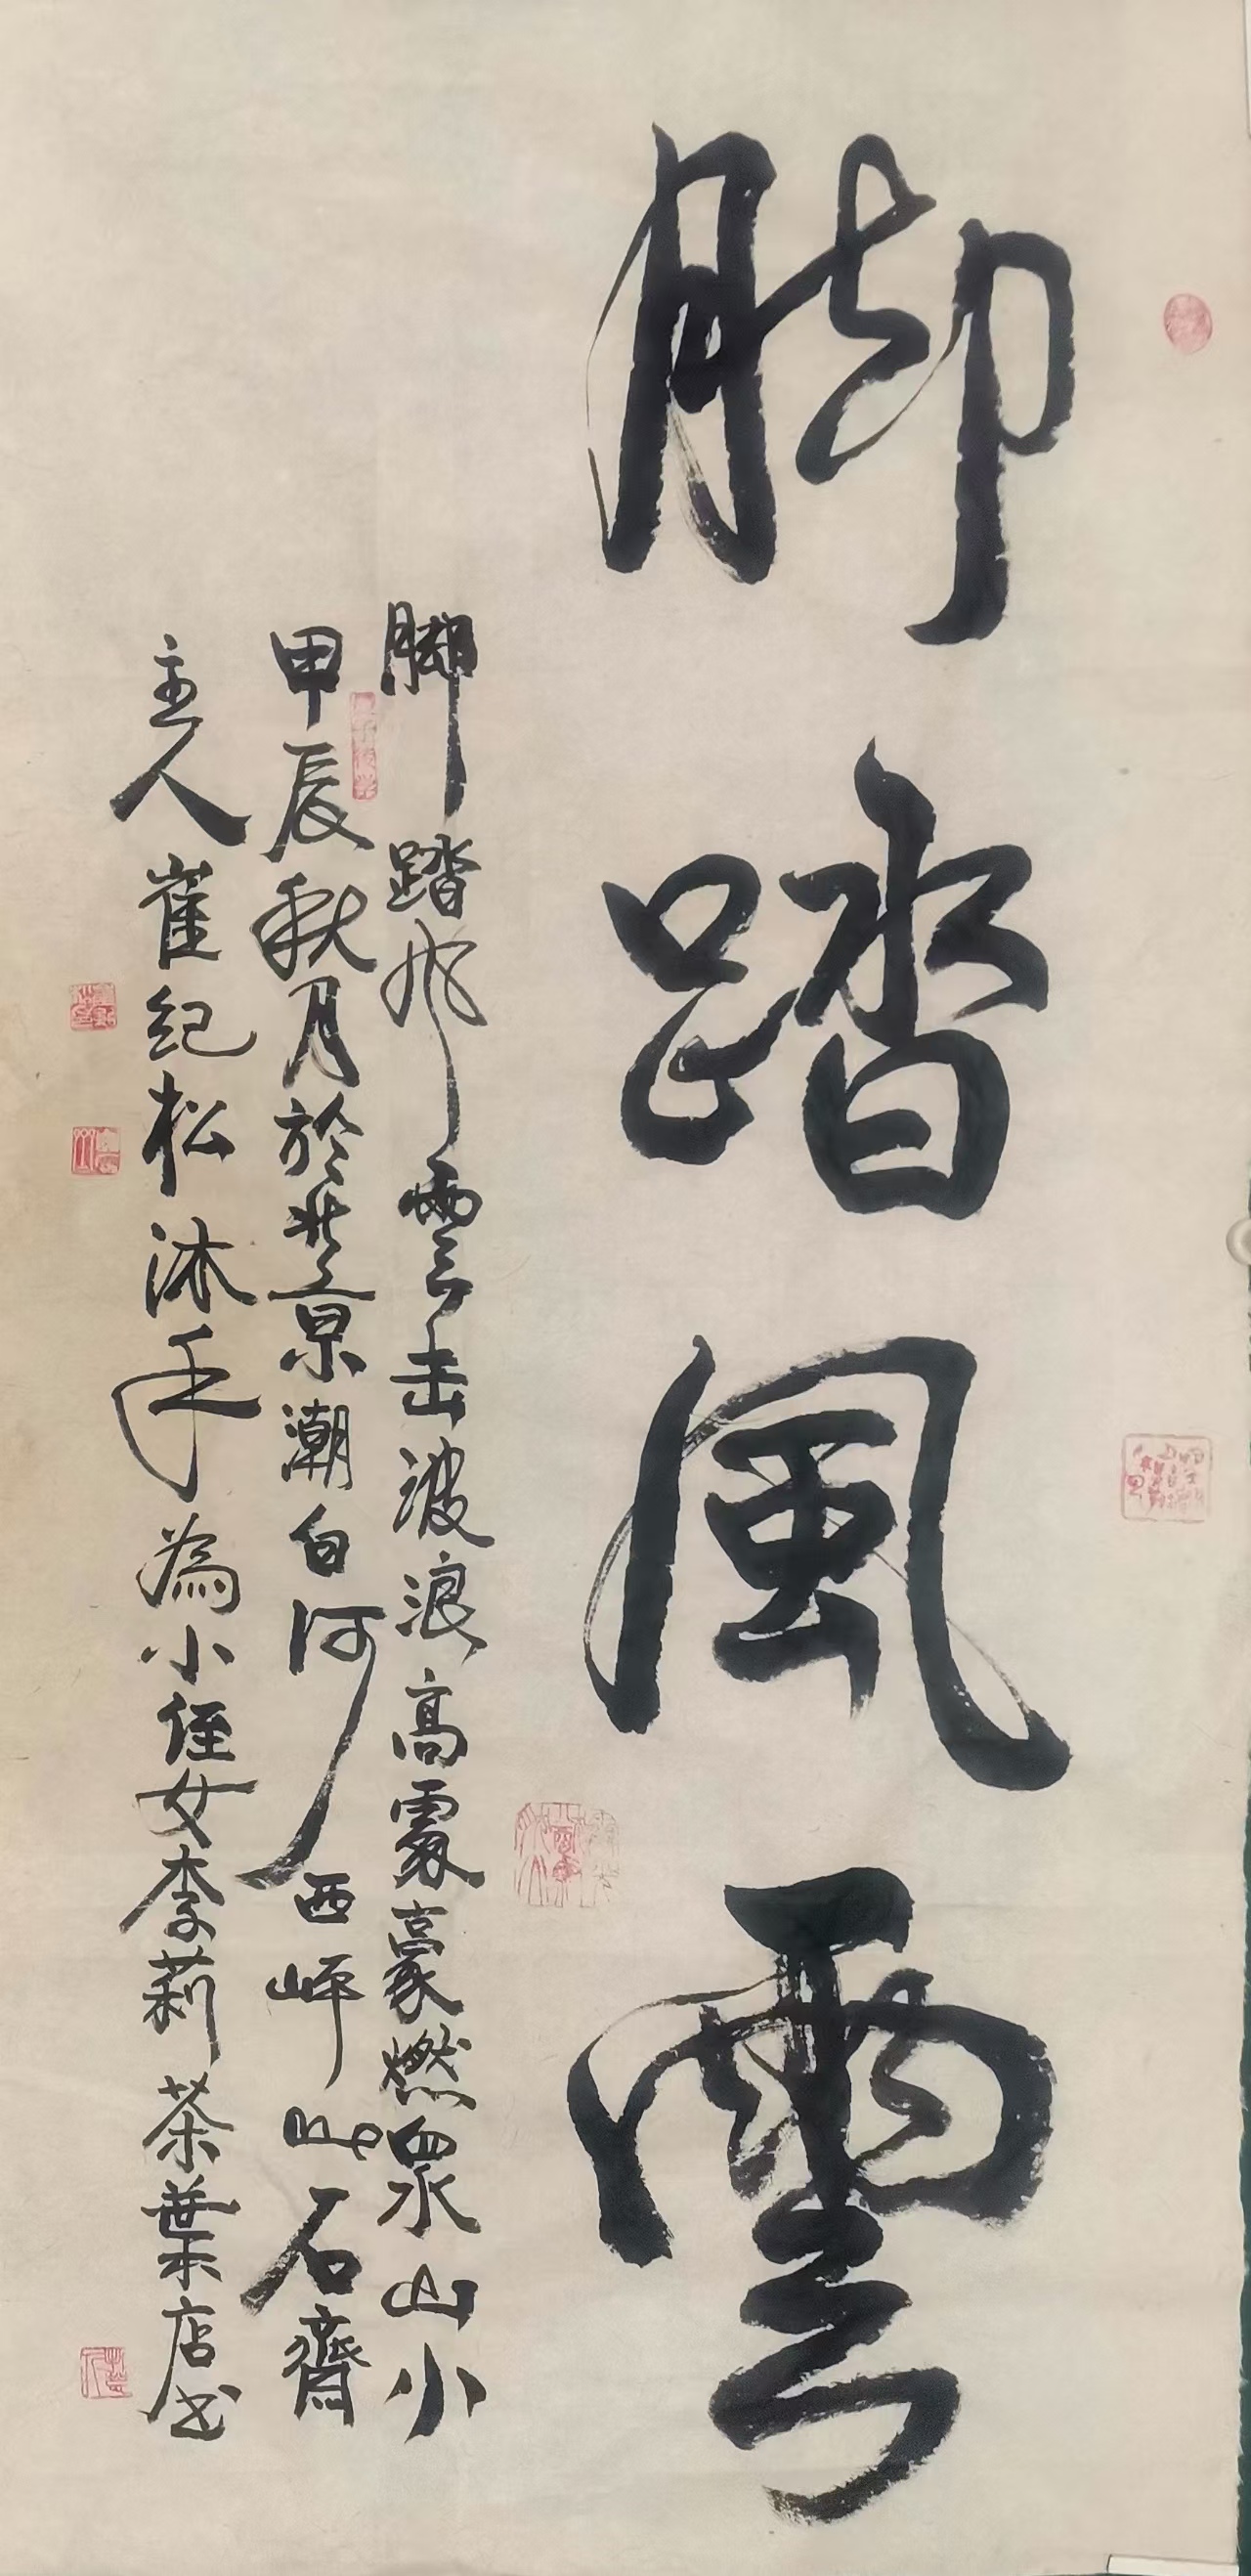 脚踏風雲
脚踏風雲击波浪高處豪燃眾山小
甲辰秋月於北京潮白河西岸 石齋
主人崔纪松沐手為小侄女李莉茶葉店书